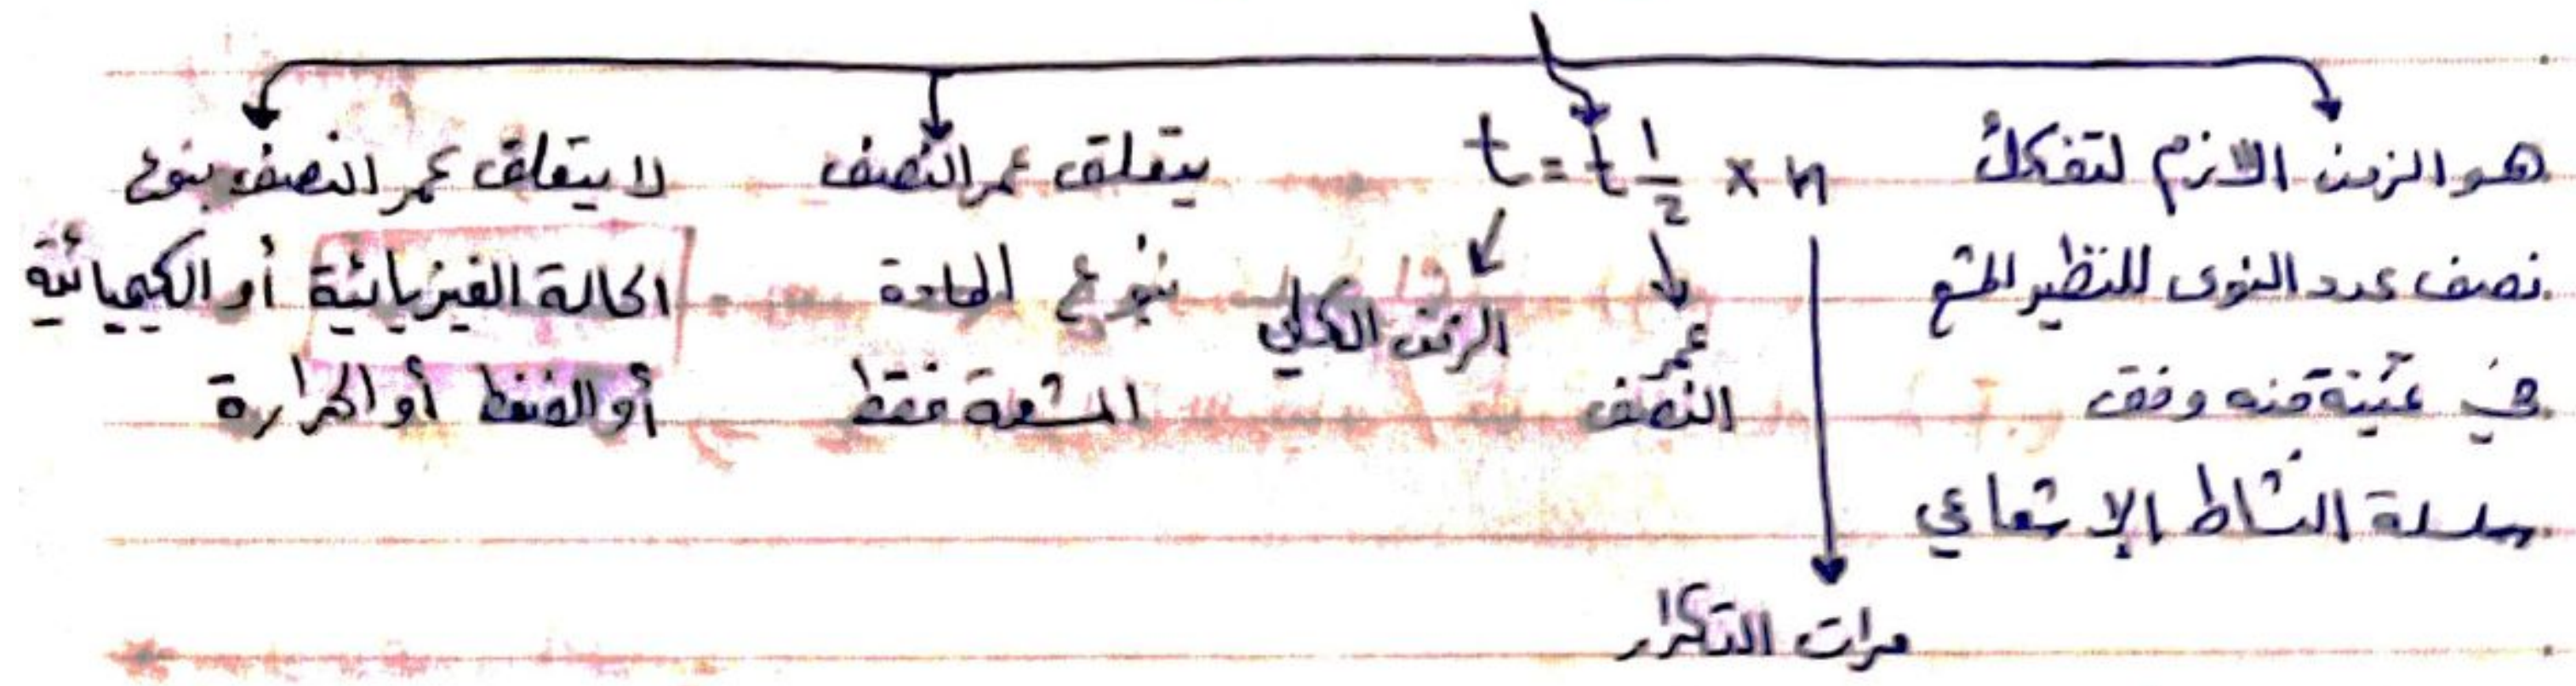 هو الزمن الازم لتفكك
نصف عدد النوى للنظير المشع
في عيّنة منه وفق
سلسلة النشاط الإشعاعي
t = t 1/2 × n
الزمن الكلي
عمر
النصف
مرات التكرار
يتعلق عمر النصف
بنوع المادة
المشعة فقط
لا يتعلق عمر النصف بنوع
الحالة الفيزيائية أو الكيميائية
أو الضغط أو الحرارة